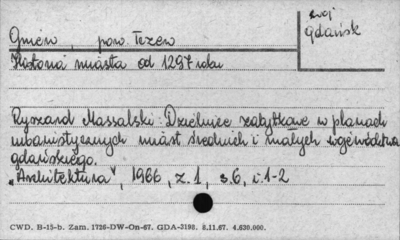 woj
Gdańsk
Gniew, pow. Tczew
Historia miasta od 1297 roku
Ryszard Massalski: Dzielnice zabytkowe w planach
urbanistycznych miast średnich i małych województwa
gdańskiego.
„Architektura", 1966, z.1, s.6, i.1-2
CWD. B-15-b. Zam. 1726-DW-On-67. GDA-3190. 8.11.67. 4.630.000.